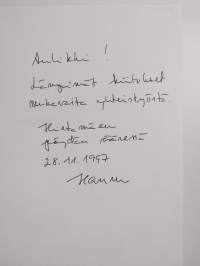 Aulikki!
Lämpimät kiitokset
mukavasta yhteistyöstä.
pöydän ääressä
28.11.1997
Hannu